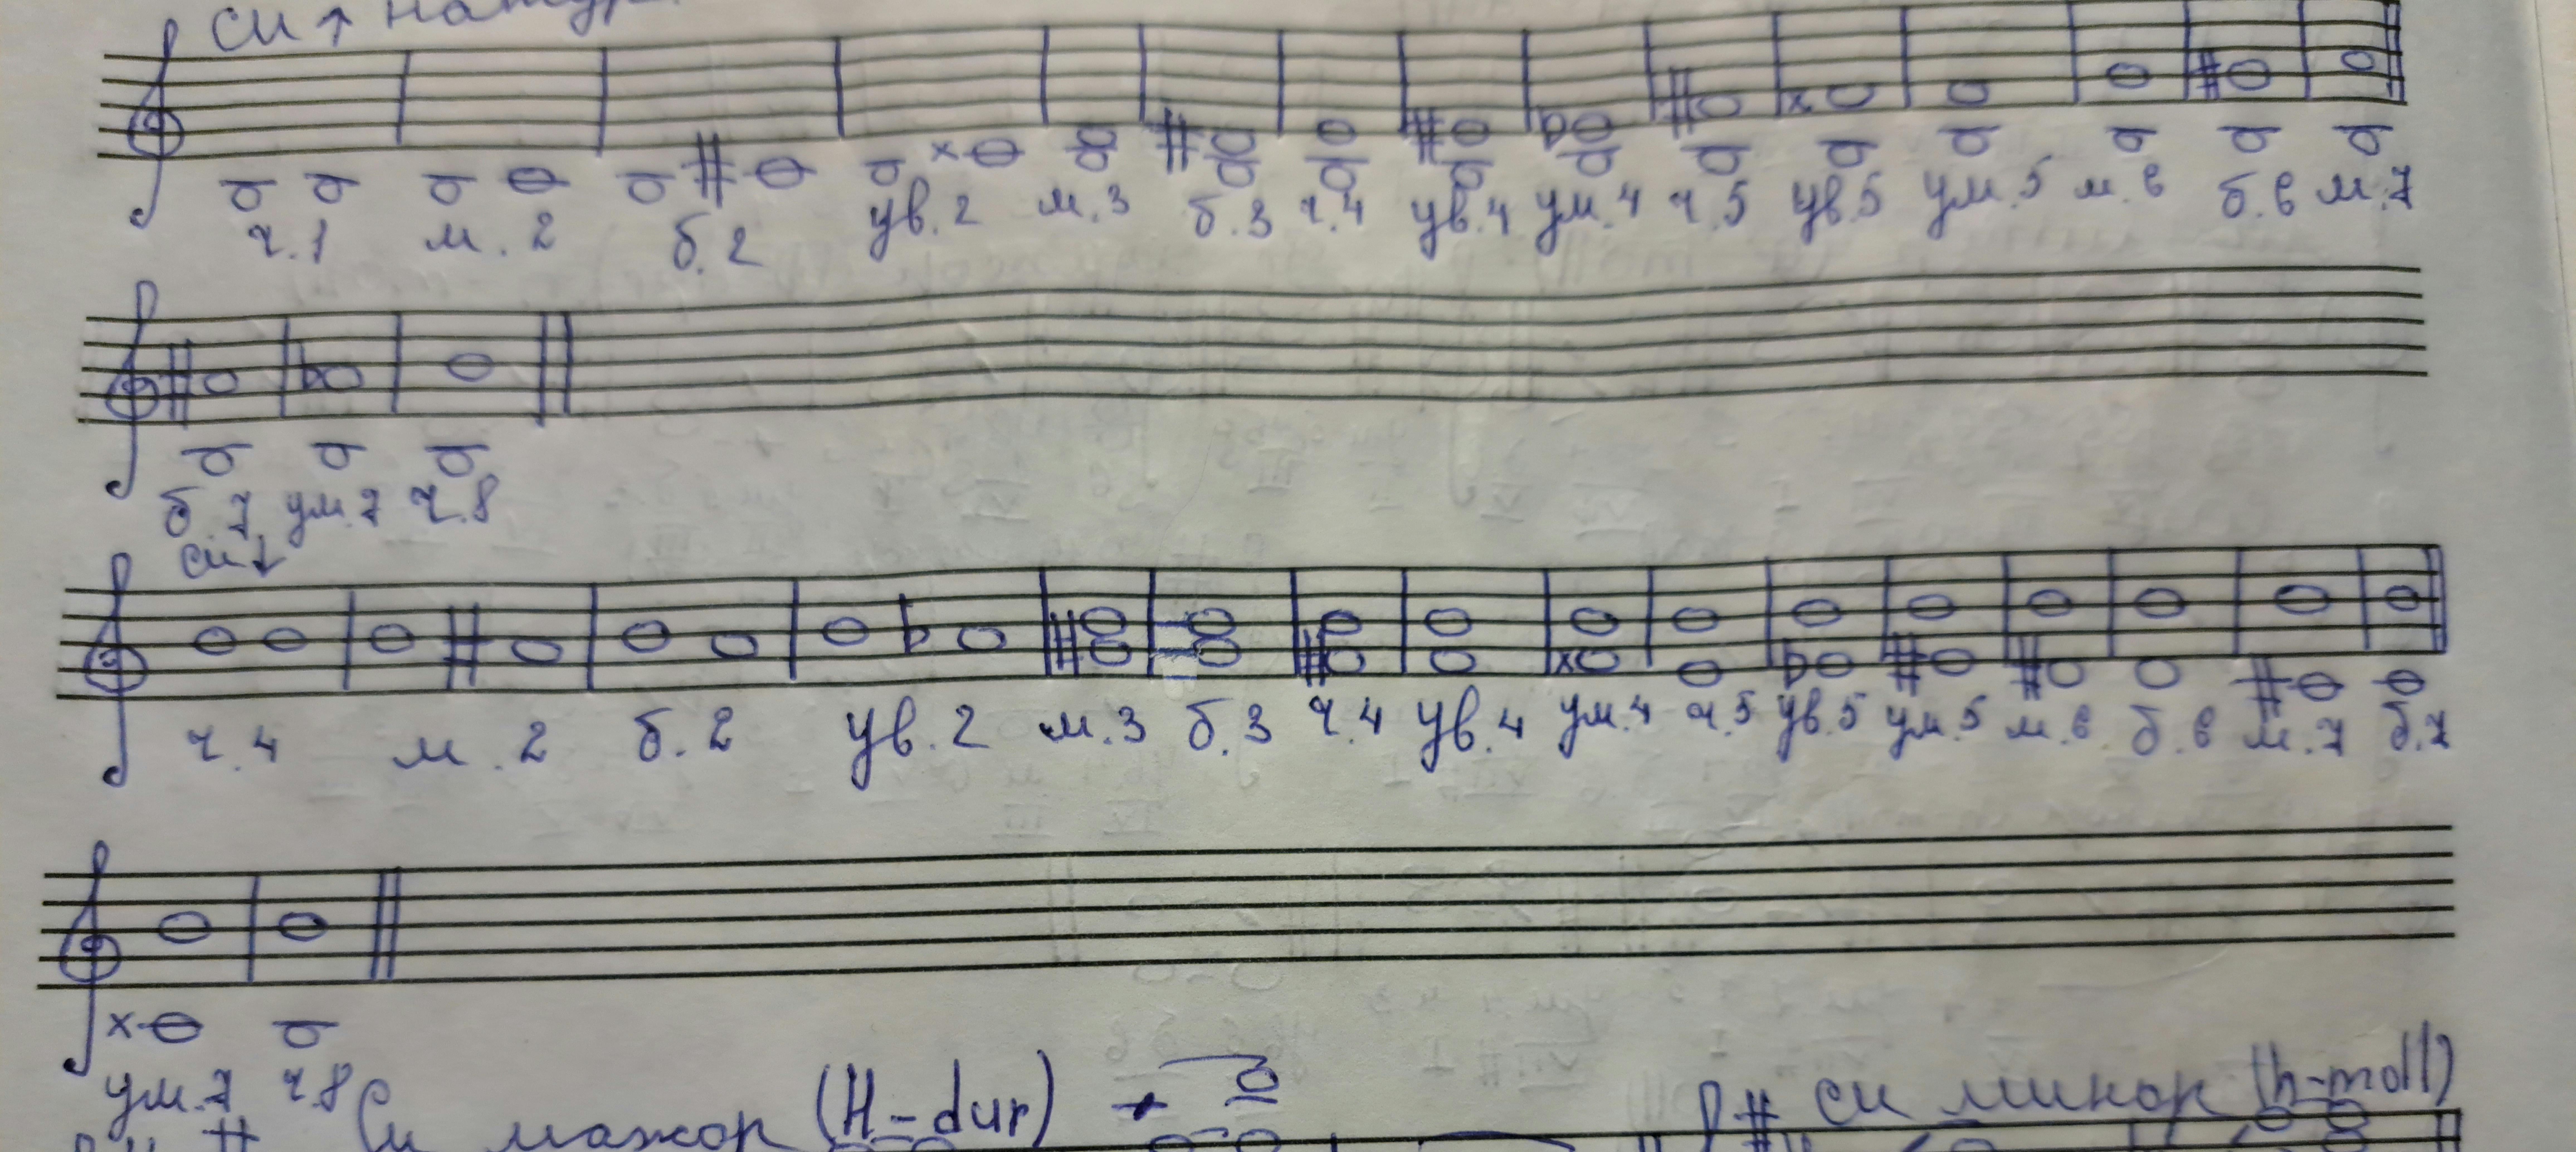 си ↑ натур.
ч.1 м.2 б.2 ув.2 м.3 б.3 ч.4 ув.4 ум.4 ч.5 ув.5 ум.5 м.6 б.6 м.7
б.7 ум.7 ч.8
си ↓
ч.4 м.2 б.2 ув.2 м.3 б.3 ч.4 ув.4 ум.4 ч.5 ув.5 ум.5 м.6 б.6 м.7 б.7
ум.7 ч.8
Си мажор (H-dur) си минор (h-moll)